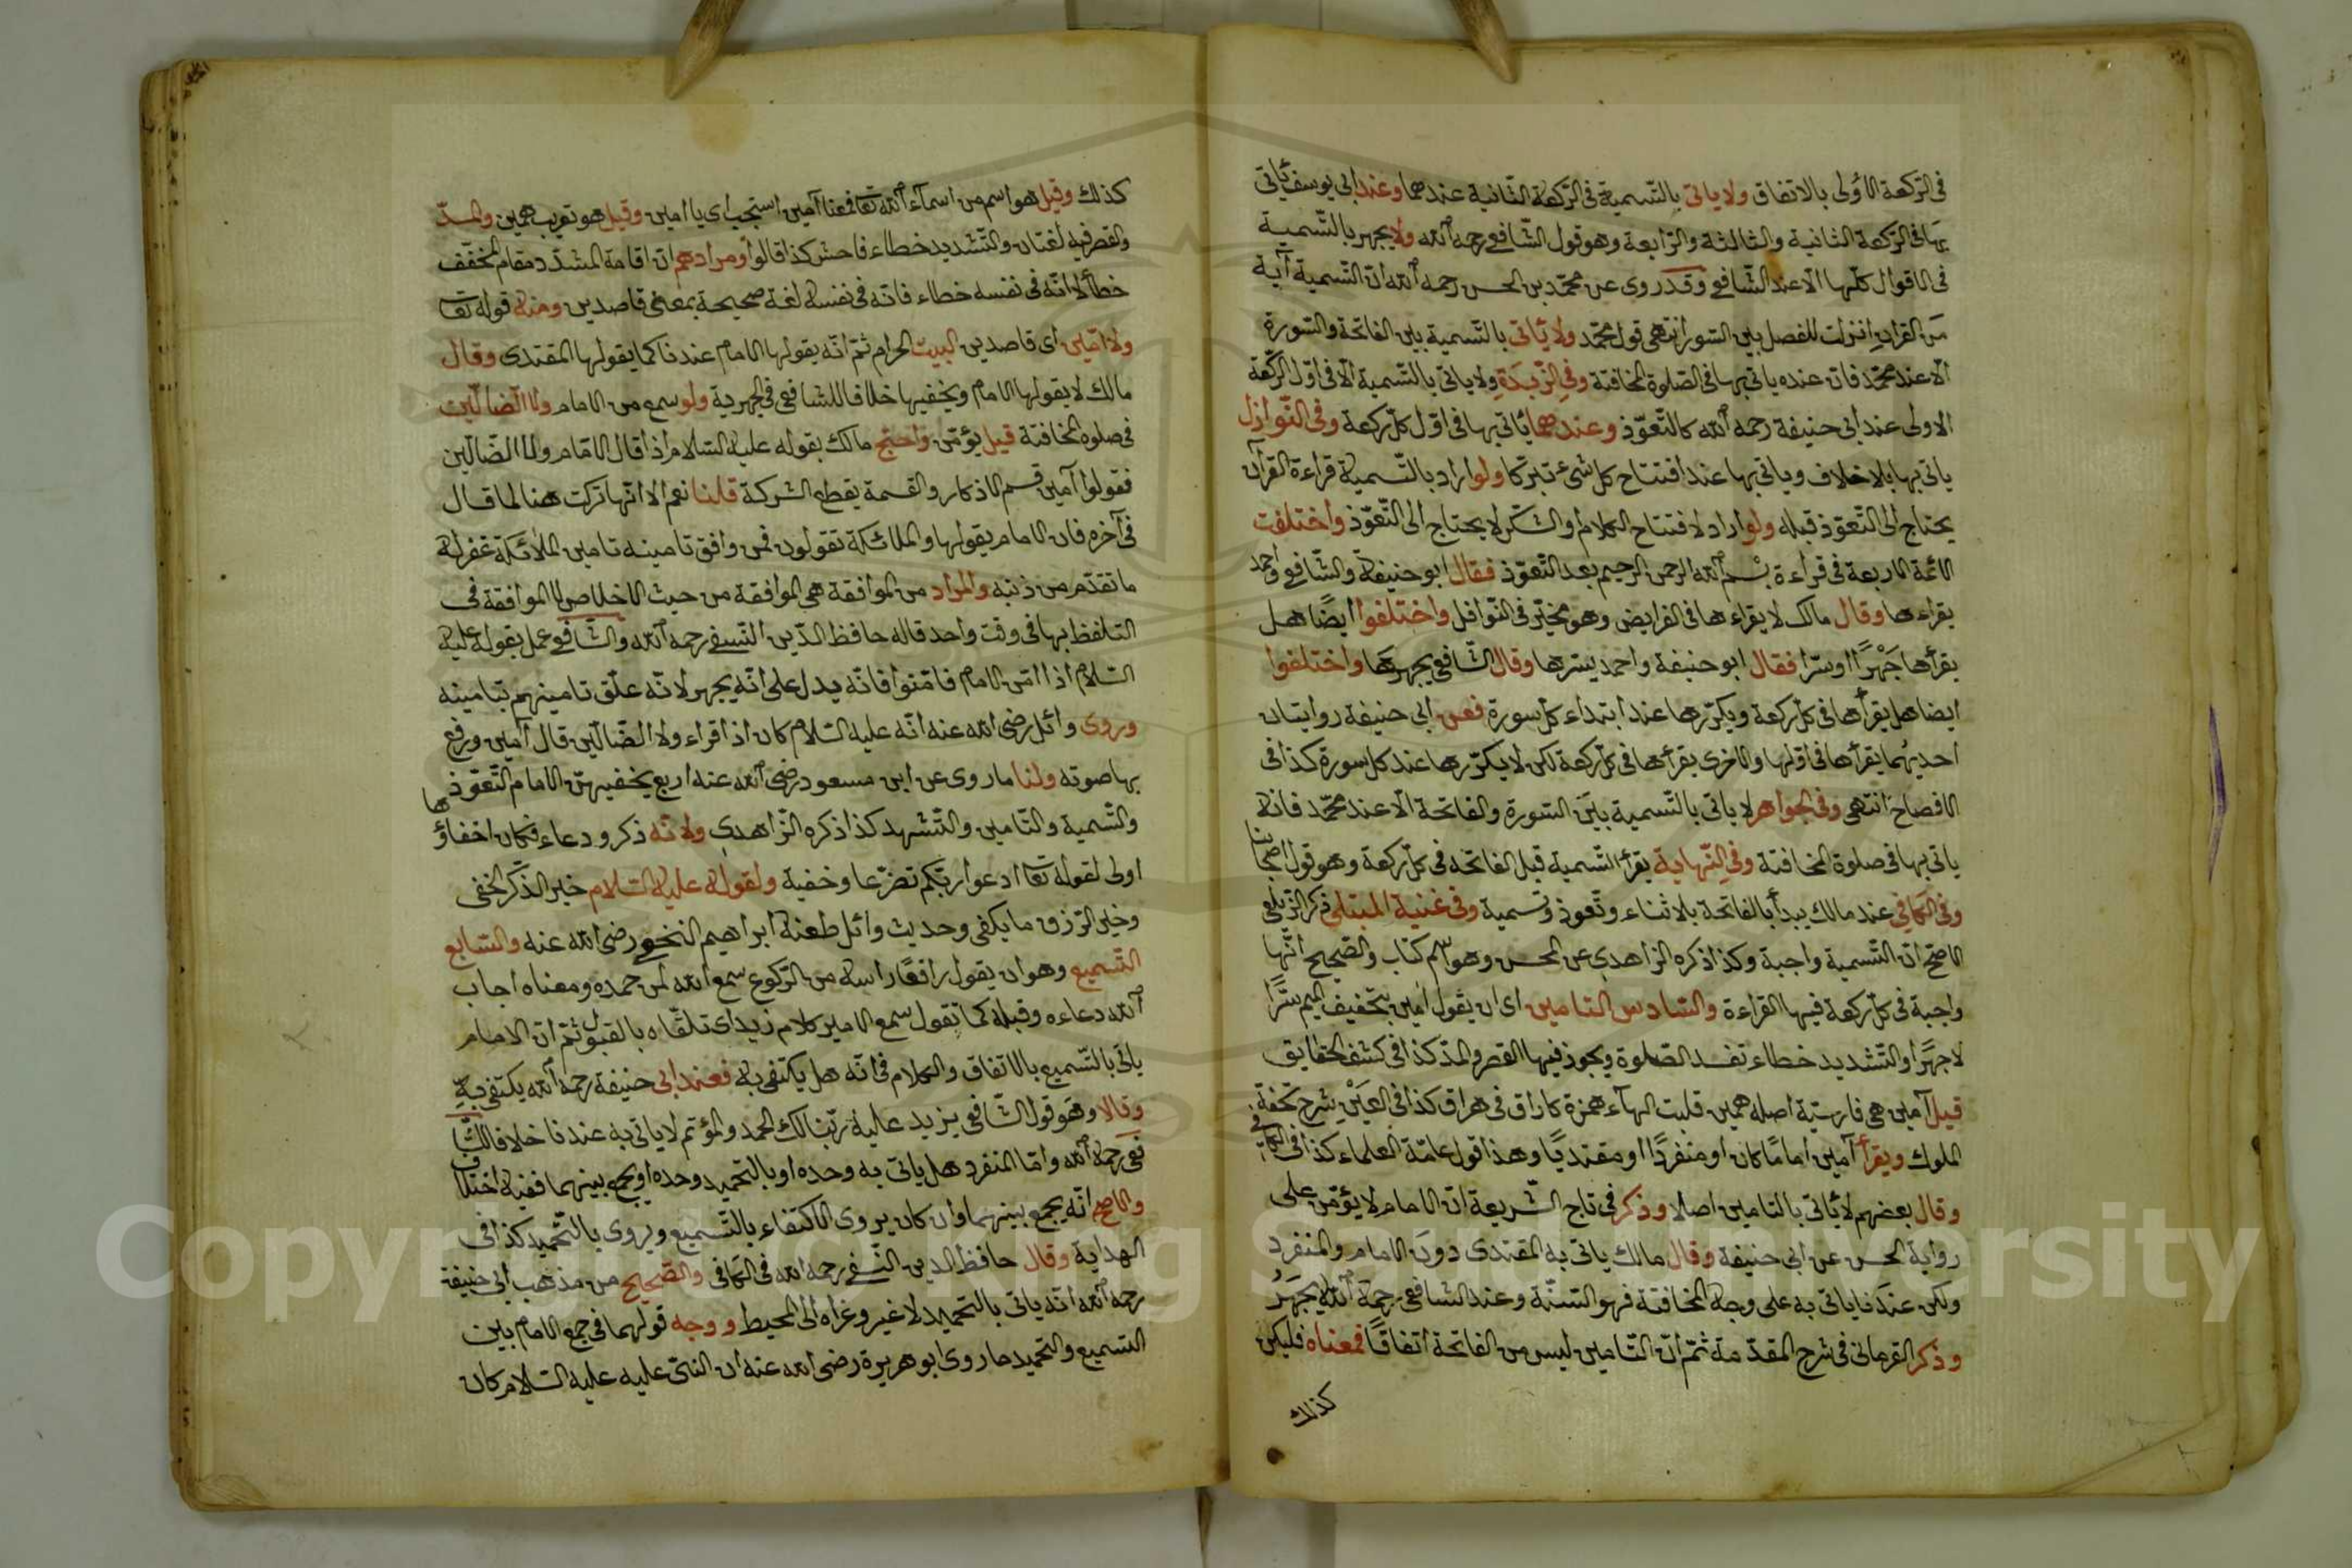 فى الرّكعة الأولى بالاتفاق ولا ياتى بالتّسمية فى الرّكعة الثانية عندهما وعند ابى يوسف يأتى
بها فى الرّكعة الثانية والثالثة والرّابعة وهو قول الشّافعى رحمه الله ولا يجهر بالتّسمية
فى الاقوال كلّها الّا عند الشّافعى وقد روى عن محمّد بن الحسن رحمه الله انّ التّسمية آية
من القران انزلت للفصل بين السّور انتهى قول محمّد ولا يأتى بالتّسمية بين الفاتحة والسّورة
الّا عند محمّد فانّ عنده ياتى بها فى الصّلوة المخافتة وفى الزّبدة ولا ياتى بالتّسمية الّا فى اوّل الرّكعة
الاولى عند ابى حنيفة رحمه الله كالتّعوّذ وعندهما يأتى بها فى اوّل كلّ ركعة وفى النّوازل
ياتى بها بلا خلاف وياتى بها عند افتتاح كل شئ تبرّكا ولو اراد بالتّسمية قراءة القرآن
يحتاج الى التّعوّذ قبله ولو اراد لافتتاح الكلام والشّكر لا يحتاج الى التّعوّذ واختلفت
الائمّة الاربعة فى قراءة بسم الله الرحمن الرحيم بعد التّعوّذ فقال ابو حنيفة والشّافعى واحمد
يقراءها وقال مالك لا يقراءها فى الفرايض وهو مخيّر فى النّوافل واختلفوا ايضًا هل
يقرأها جَهْرًا او سرّا فقال ابو حنيفة واحمد يسّرها وقال الشّافعى يجهر بها واختلفوا
ايضا هل يقرأها فى كلّ ركعة ويكرّرها عند ابتداء كلّ سورة فعن ابى حنيفة روايتان
احديهما يقرأها فى اوّلها والاخرى يقرأها فى كلّ ركعة لكن لا يكرّرها عند كل سورة كذا فى
الافصاح انتهى وفى الجواهر لا ياتى بالتّسمية بين السّورة والفاتحة الّا عند محمّد فانه
ياتى بها فى صلوة المخافتة وفى النّهاية يقرأ التّسمية قبل الفاتحة فى كلّ ركعة وهو قول اصحابنا
وفى الكافى عند مالك يبدأ بالفاتحة بلا ثناء وتعوذ وتسمية وفى غنية المبتلى ذكر الزّيلعى
الاصّح انّ التّسمية واجبة وكذا ذكره الزاهدى عن المحسن وهو اسم كتاب والصّحيح انّها
واجبة فى كلّ ركعة فيها القراءة والسّادس التامين اى ان يقول امين بتخفيف الميم سرًّا
لا جهرًا والتّشديد خطاء تفسد الصّلوة ويجوز فيها القصر والمدّ كذا فى كشف الحقايق
قيل آمين هى فارسيّة اصله همين قلبت الهآء همزة كاراق فى هراق كذا فى العَيْن شرح تحفة
الملوك ويقرأ آمين اماما كان او منفردًا او مقتديًا وهذا قول عامّة العلماء كذا فى الكافى
وقال بعضهم لا يأتى بالتامين اصلا وذكر فى تاج الشّريعة انّ الامام لا يؤمّن على
رواية الحسن عن ابى حنيفة وقال مالك ياتى به المقتدى دون الامام والمنفرد
ولكن عندنا ياتى به على وجه المخافتة فهو السّنّة وعند الشّافعى رحمة الله يجهر
وذكر القرمانى فى شرح المقدّمة ثمّ انّ التّامين ليس من الفاتحة اتفاقًا فمعناه فليكن
كذلك
كذلك وقيل هو اسم من اسمآء الله تعا فمعنا آمين استجب اى يا امين وقيل هو تعريب همين والمدّ
والقصر فيه لغتان والتّشديد خطاء فاحش كذا قالوا ومرادهم انّ اقامة المشدّد مقام المخفّف
خطأ لا انّه فى نفسه خطاء فانّه فى نفسه لغة صحيحة بمعنى قاصدين ومنه قوله تعا
ولا امّين اى قاصدين البيت الحرام ثمّ انّه يقولها الامام عندنا كما يقولها المقتدى وقال
مالك لا يقولها الامام ويخفيها خلافا للشافعى فى الجهرية ولو سمع من الامام ولا الضّالّين
فى صلوه المخافتة قيل يؤمّن واحتج مالك بقوله عليه السّلام اذا قال الامام ولا الضّالّين
فقولوا آمين قسم الاذكار والقسمة يقطع الشركة قلنا نعم الّا انّها تركت هنا لما قال
فى آخره فان الامام يقولها والملائكة تقولون فمن وافق تامينه تامين الملائكة غفر له
ما تقدّم من ذنبه والمراد من الموافقة هى الموافقة من حيث الاخلاص لا الموافقة فى
التلفظ بها فى وقت واحد قاله حافظ الدّين النّسفى رحمه الله والشّافعى عمل بقوله عليه
السّلام اذا امّن الامام فامّنوا فانّه يدل على انّه يجهر لانّه علّق تامينهم بتامينه
وروى وائل رضى الله عنه انّه عليه السّلام كان اذا قراء ولا الضّالّين قال آمين ورفع
بها صوته ولنا ما روى عن ابن مسعود رضى الله عنه اربع يخفيهنّ الامام التّعوّذ
والتّسمية والتّامين والتّشهد كذا ذكره الزّاهدى ولانّه ذكر ودعاء فكان اخفاؤها
اولى لقوله تعا ادعوا ربّكم تضرّعا وخفية ولقوله عليه السّلام خير الذّكر الخفى
وخير الرّزق ما يكفى وحديث وائل طعنه ابراهيم النخعى رضى الله عنه والسّابع
التّسميع وهو ان يقول رافعًا راسه من الرّكوع سمع الله لمن حمده ومعناه اجاب
الله دعاءه وقبله كما تقول سمع الامير كلام زيد اى تلقّاه بالقبول ثمّ انّ الامام
ياتى بالتّسميع بالاتفاق والكلام فى انّه هل يكتفى به فعند ابى حنيفة رحمه الله يكتفى به
وقالا وهو قول الشّافعى يزيد عليه ربّنا لك الحمد والمؤتم لا ياتى به عندنا خلافا للشّا
فعى رحمه الله وامّا المنفرد هل ياتى به وحده او بالتحميد وحده او يجمع بينهما ففيه اختلاف
والاصح انّه يجمع بينهما وان كان يروى الاكتفاء بالتّسميع ويروى بالتّحميد كذا فى
الهداية وقال حافظ الدين النّسفى رحمه الله فى الكافى والصّحيح من مذهب ابى حنيفة
رحمه الله انّه ياتى بالتحميد لا غير وغراه الى المحيط ووجه قولهما فى جمع الامام بين
التسميع والتحميد ما روى ابو هريرة رضى الله عنه ان النبى عليه عليه السّلام كان
Copyright © King Saud University